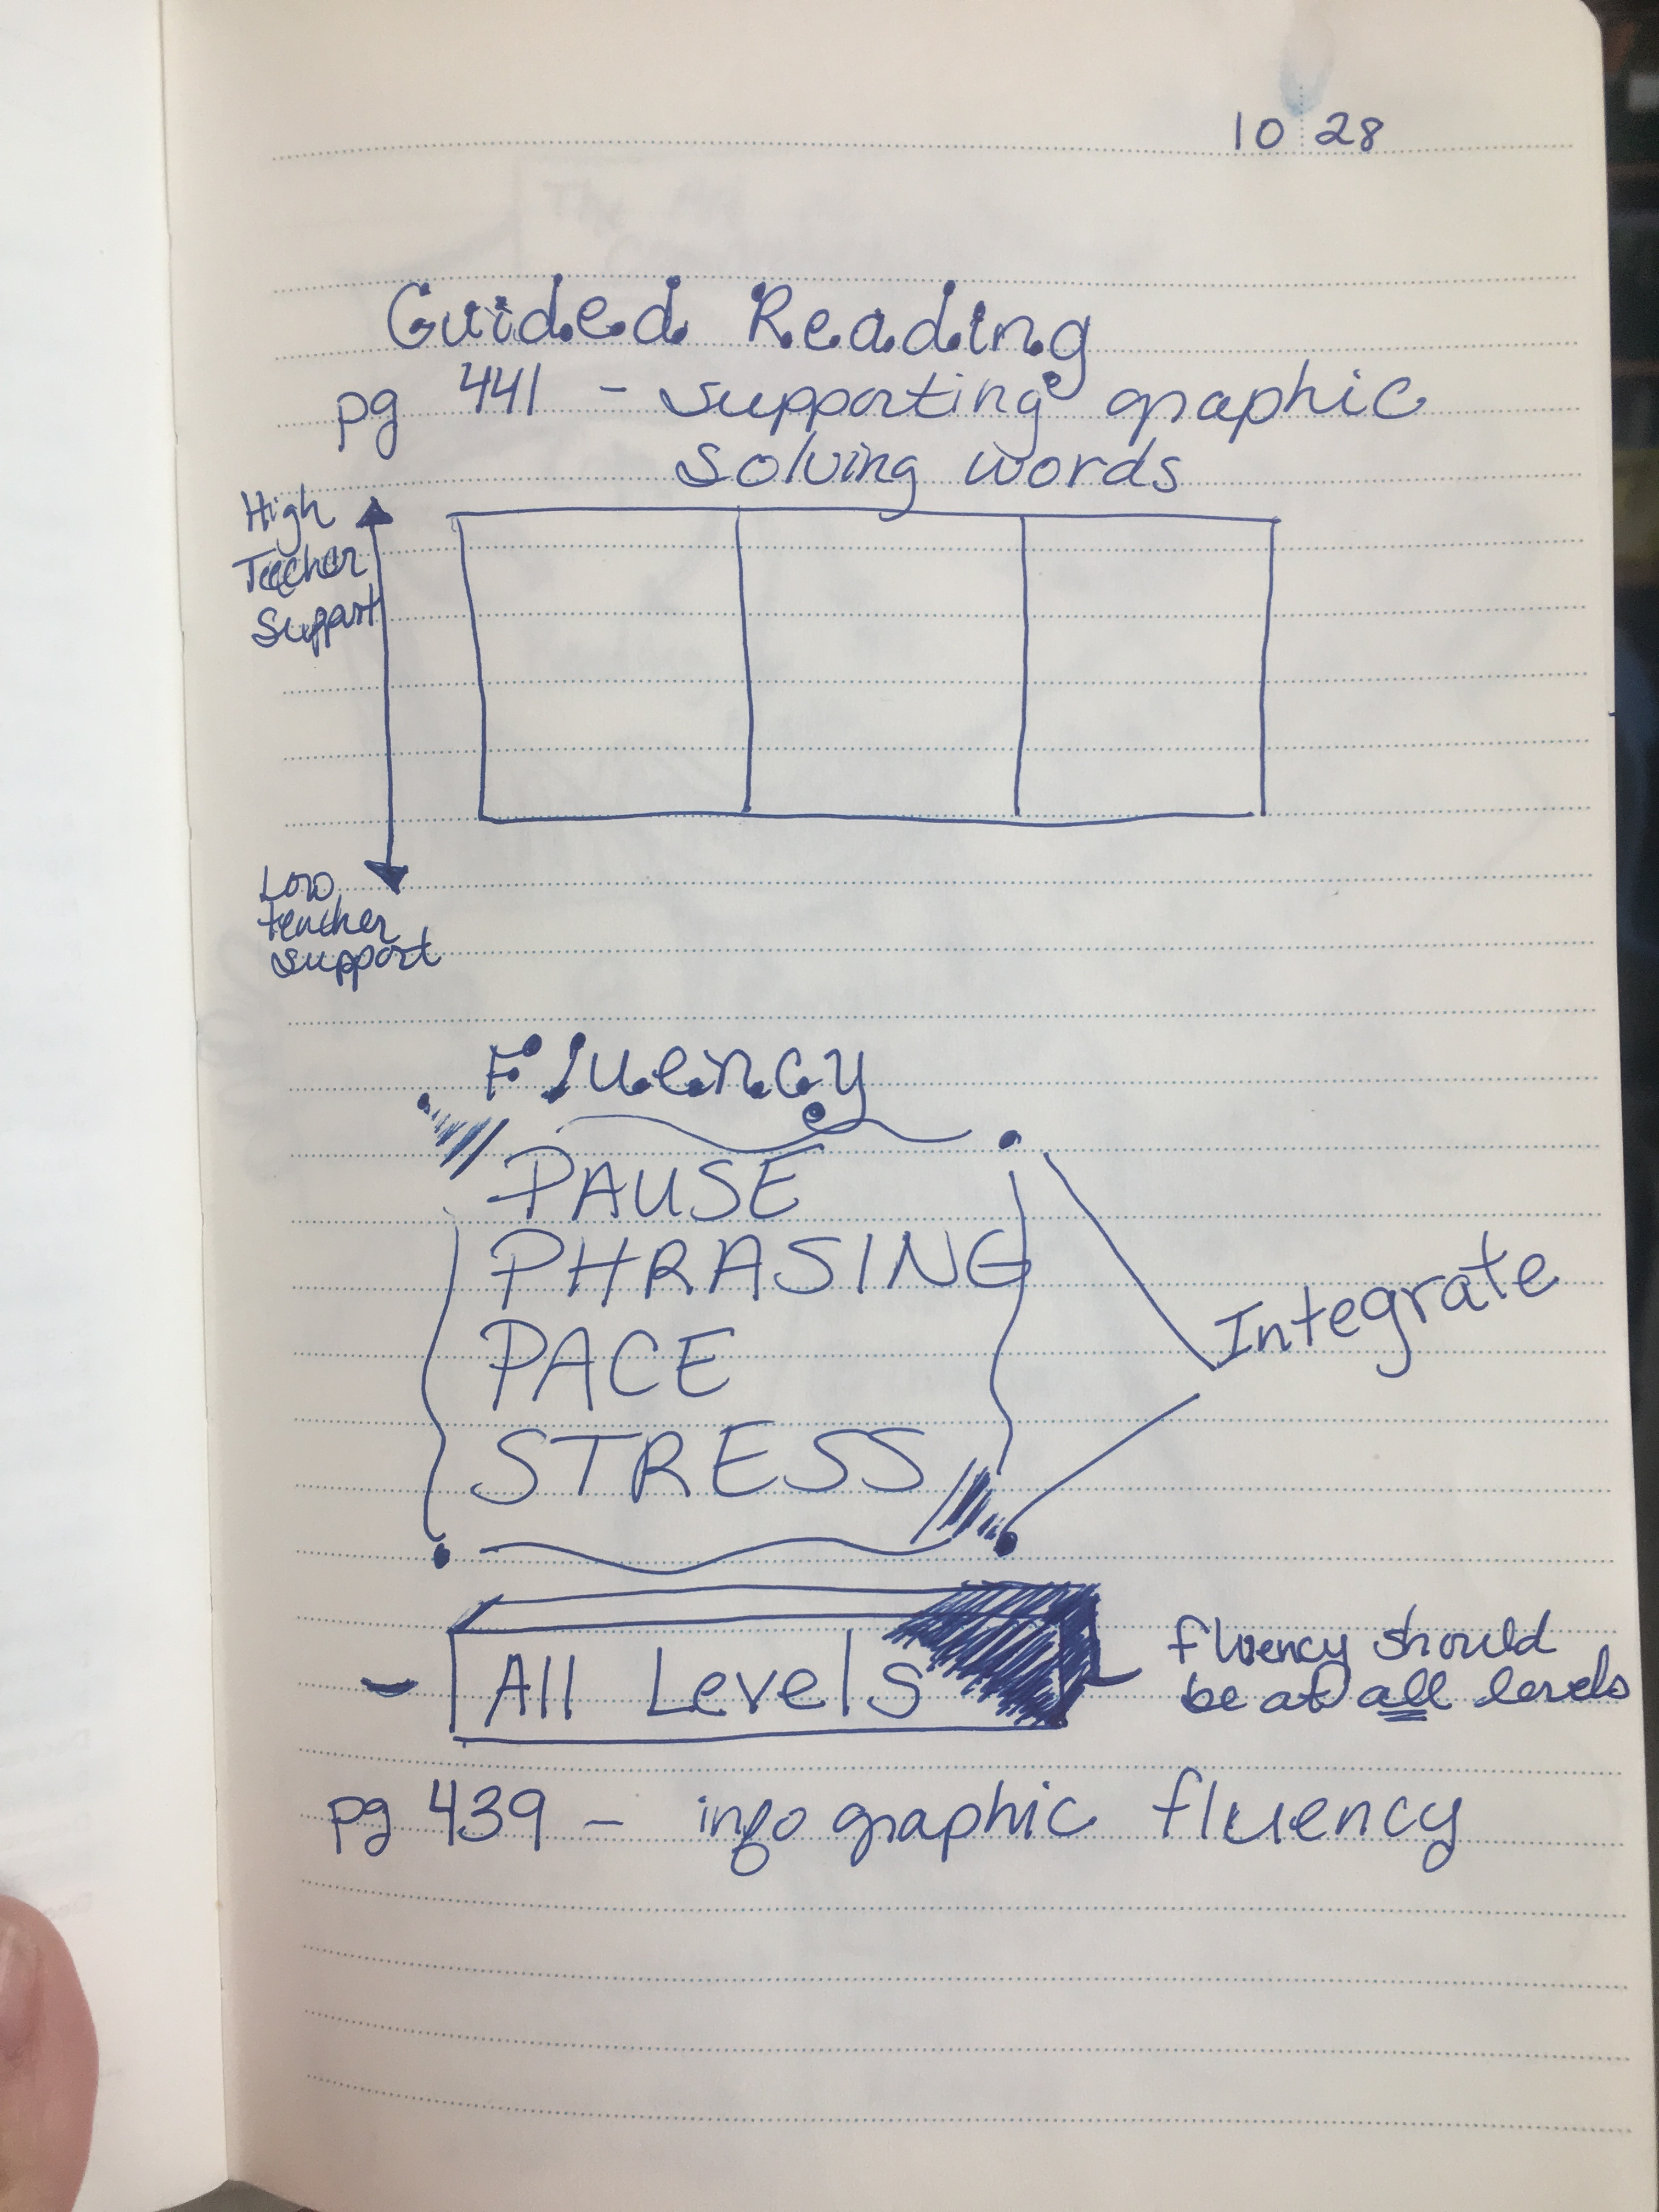 10 28
Guided Reading
pg 441 - supporting graphic
solving words
High
Teacher
Support
Low
teacher
support
Fluency
PAUSE
PHRASING
PACE
STRESS
Integrate
- All Levels
fluency should
be at all levels
pg 439 - info graphic fluency